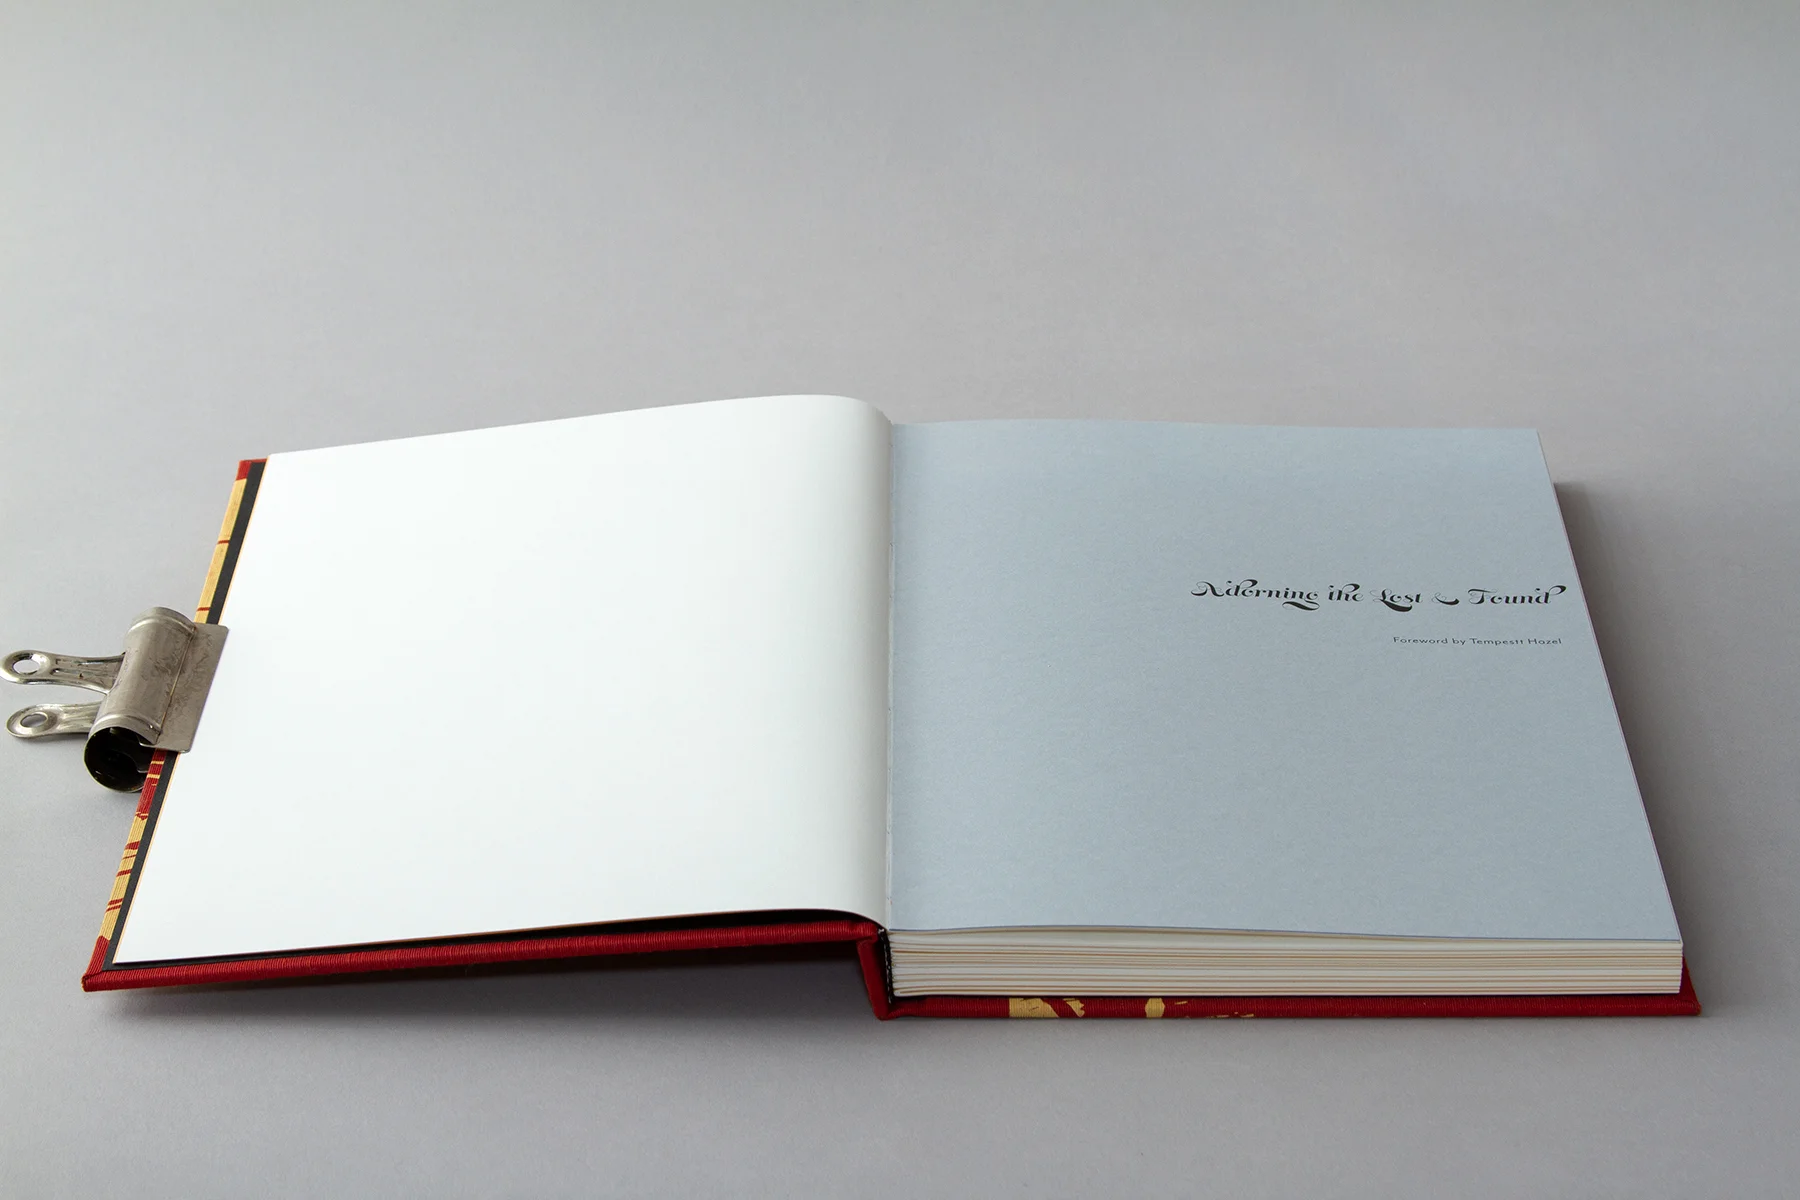 Adorning the Lost & Found
Foreword by Tempestt Hazel